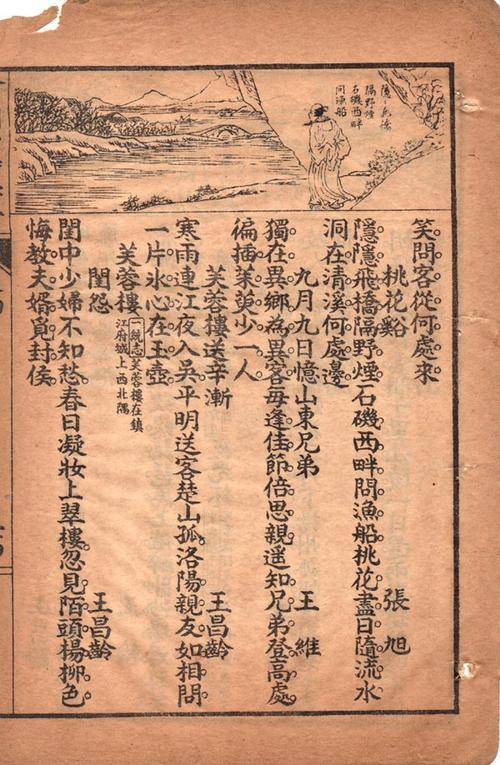 隱隱飛橋
隔野煙
石磯西畔
問漁船
笑問客從何處來
桃花谿 張旭
隱隱飛橋隔野煙。石磯西畔問漁船。桃花盡日隨流水。
洞在清溪何處邊。
九月九日憶山東兄弟 王維
獨在異鄉為異客。每逢佳節倍思親。遥知兄弟登高處。
徧插茱萸少一人。
芙蓉樓送辛漸 王昌齡
寒雨連江夜入吳。平明送客楚山孤。洛陽親友如相問。
一片氷心在玉壺。
芙蓉樓 一統志芙蓉樓在鎮
江府城上西北隅
閨怨 王昌齡
閨中少婦不知愁。春日凝妝上翠樓。忽見陌頭楊柳色。
悔教夫婿覓封侯。